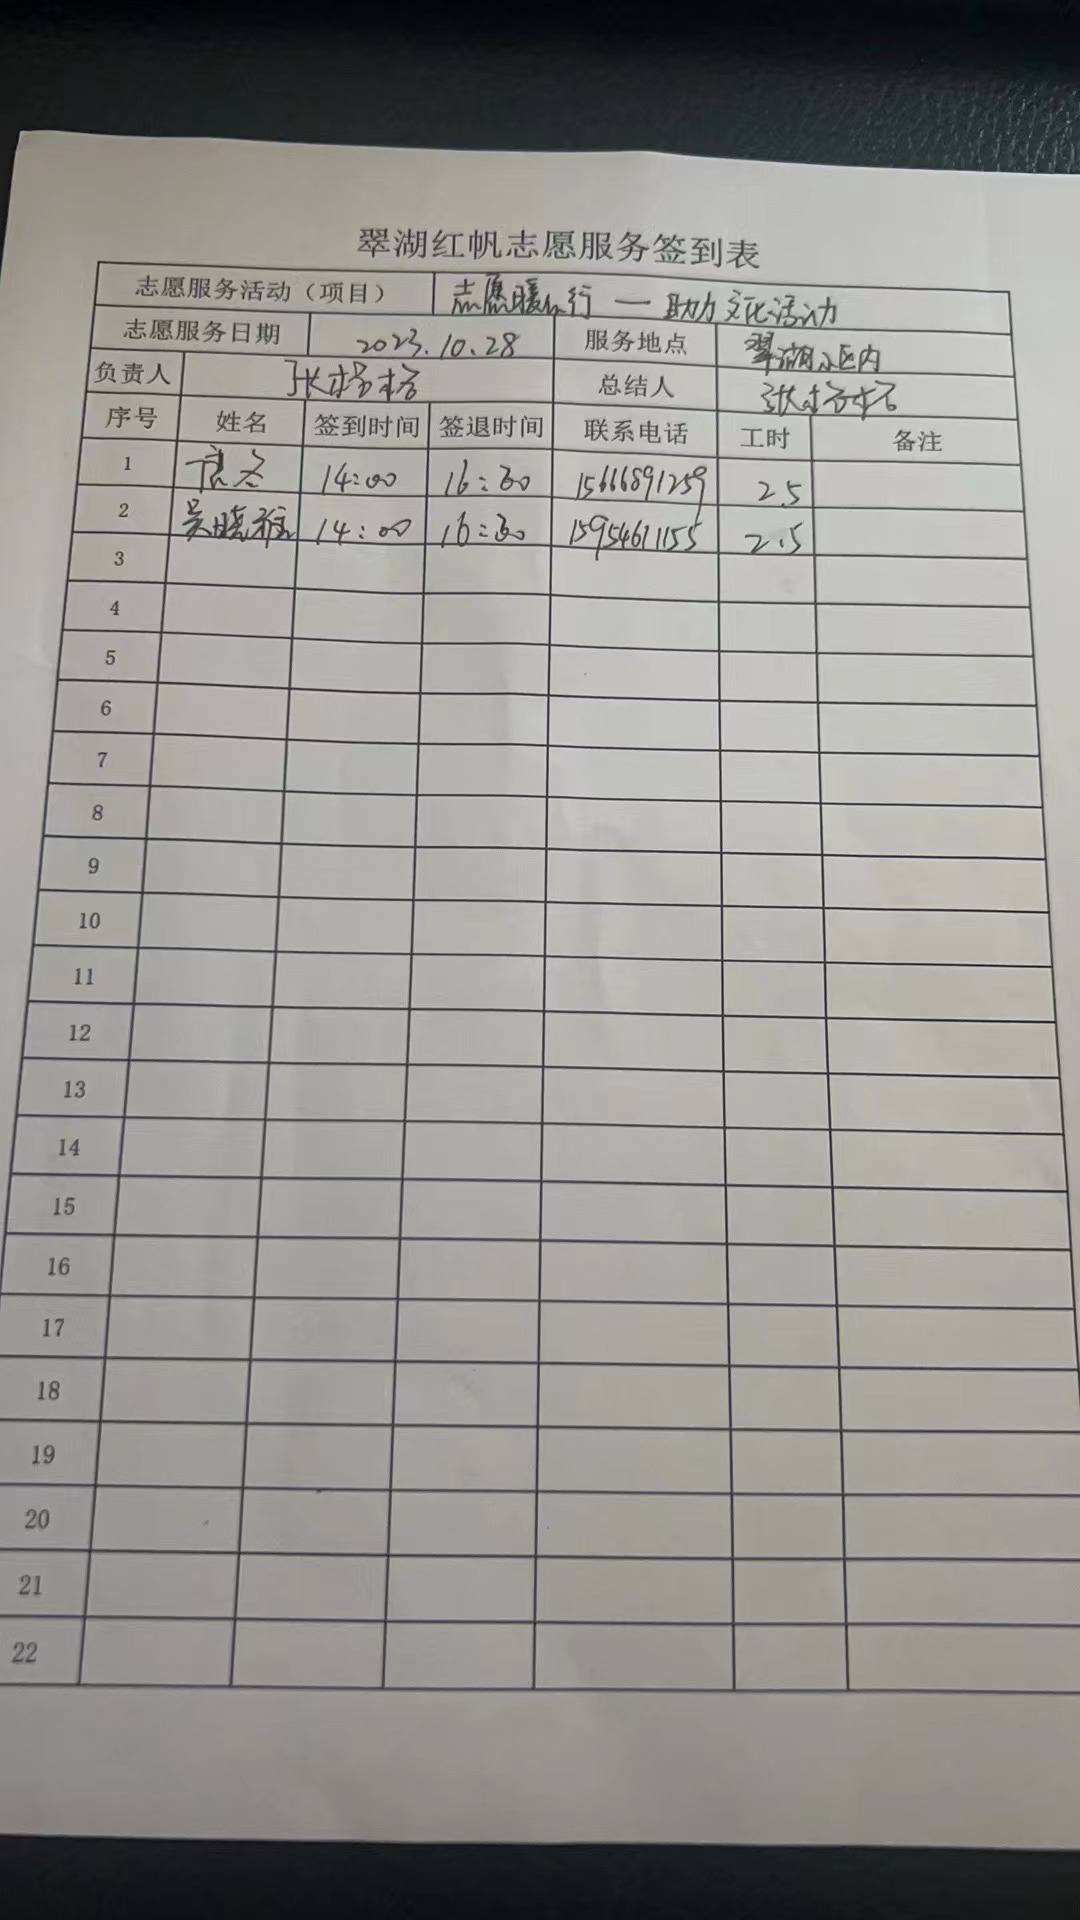 翠湖红帆志愿服务签到表
志愿服务活动（项目） 志愿暖心行 — 助力文化活动
志愿服务日期 2023.10.28 服务地点 翠湖小区内
负责人 张 总结人 张
序号 姓名 签到时间 签退时间 联系电话 工时 备注
1 14:00 16:30 15666891259 2.5
2 吴晓雅 14:00 16:30 15954611155 2.5
3
4
5
6
7
8
9
10
11
12
13
14
15
16
17
18
19
20
21
22